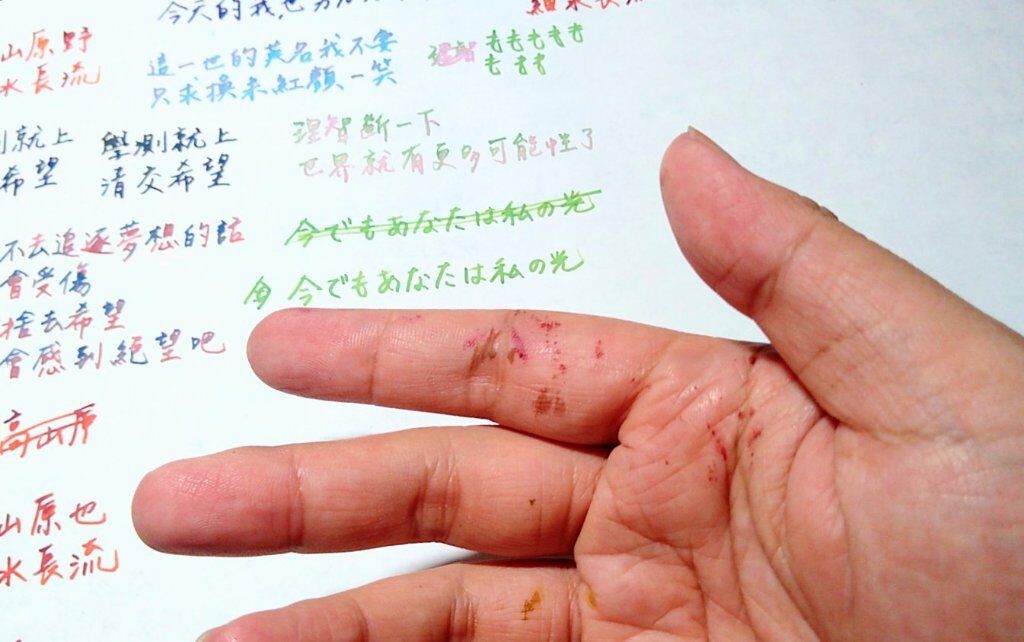 今天的我也
山原野
水長流
這一世的英名我不要
只求換來紅顏一笑
理智
ももももも
ももも
就上
希望
學測就上
清交希望
理智斷一下
世界就有更多可能性了
不去追逐夢想的話
會受傷
捨去希望
會感到絕望吧
今でもあなたは私の光
今でもあなたは私の光
高山原
山原也
水長流